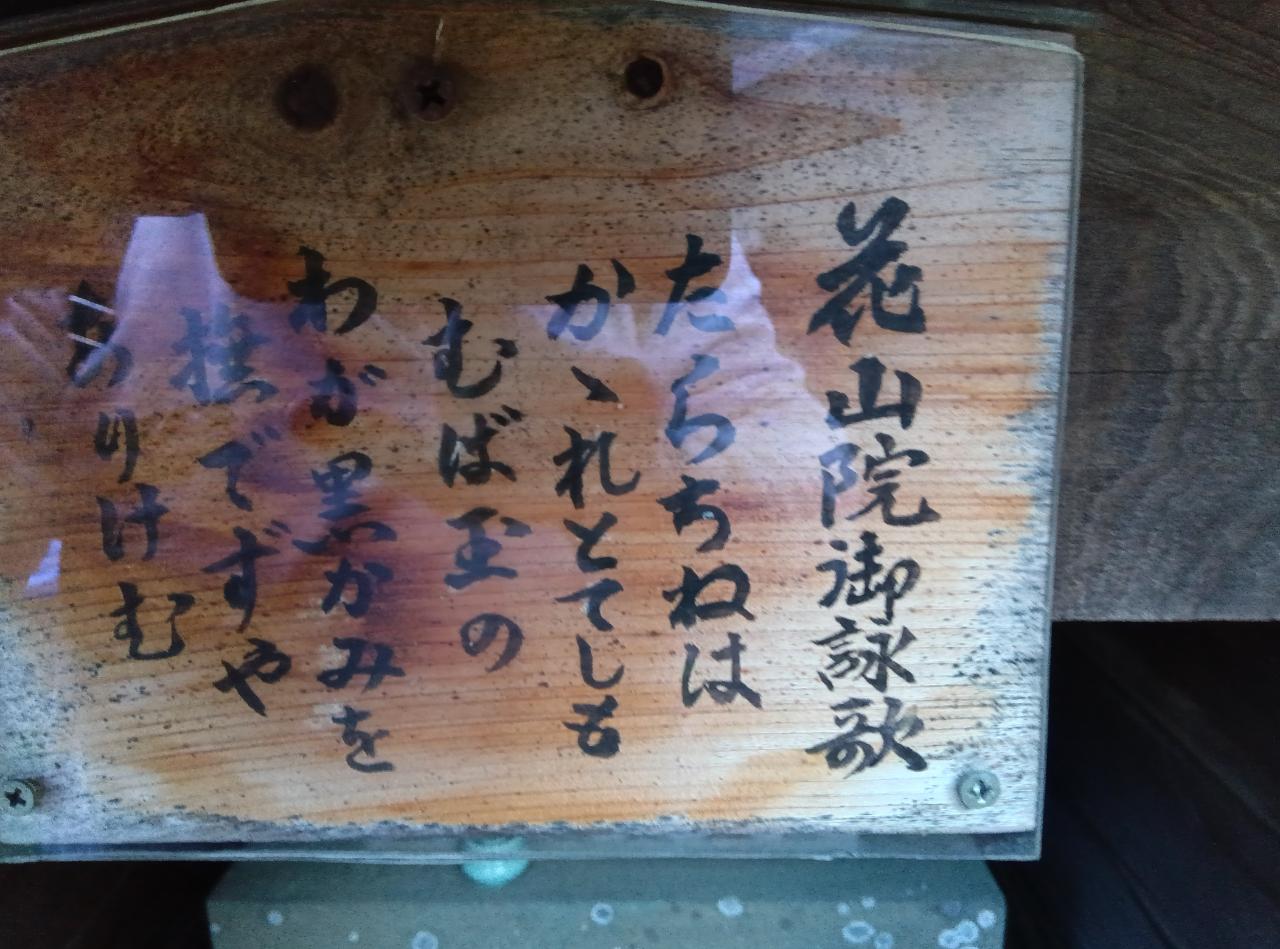 花山院御詠歌
たらちねは
かゝれとてしも
むば玉の
わが黒かみを
撫でずや
ありけむ